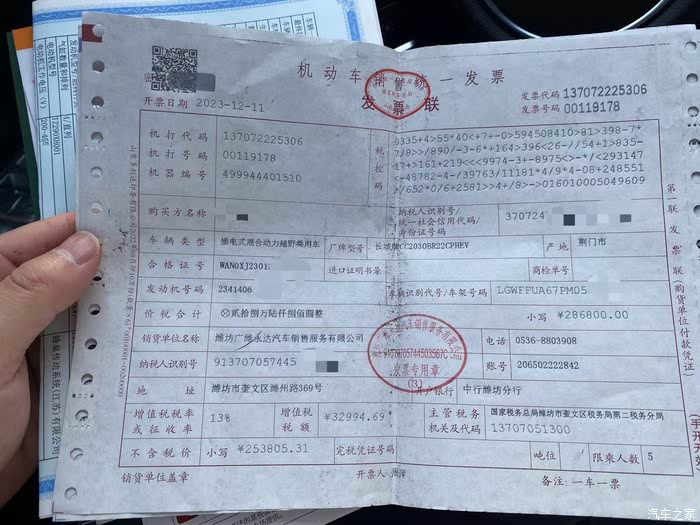 机动车销售统一发票
发票联
开票日期 2023-12-11
发票代码 137072225306
发票号码 00119178
机打代码 137072225306
机打号码 00119178
机器编号 499944401510
税控码
0335+4>55*40<+7+-0>594508410>81>398-7*
7/8>>/890/-3-6*+164>396<26-//54+1>835-
17+>161+219<<<9974-3+-8975<>-*/<293147
<-48782-4-/39763/11181*4/9*4-08+248551
>/652*0/6+2581>>4+/8->->016010005049609
购买方名称
纳税人识别号/
统一社会信用代码/
身份证号码
370724
车辆类型 插电式混合动力越野乘用车 厂牌型号 长城牌CC2030BR22CPHEV 产地 荆门市
合格证号 WAN0XJ2301 进口证明书号 商检单号
发动机号码 2341406 车辆识别代号/车架号码 LGWFFUA67PM05
价税合计 ⓧ贰拾捌万陆仟捌佰圆整 小写 ¥286800.00
销货单位名称 潍坊广潍永达汽车销售服务有限公司 电话 0536-8803908
纳税人识别号 913707057445 账号 206502222842
地址 潍坊市奎文区潍州路369号 开户银行 中行潍坊分行
增值税税率
或征收率
13%
增值税
税额
¥32994.69
主管税务
机关及代码
国家税务总局潍坊市奎文区税务局第二税务分局
13707051300
不含税价 小写 ¥253805.31 完税凭证号码 吨位 限乘人数 5
销货单位盖章 开票人 备注:一车一票
第一联 发票联(购货单位付款凭证)
手开无效
发票专用章
(3)
发动机型号
气缸数量和排列 4/直列
电动机型号 TZ290XH001
电动机工作电压(V) 200-455
蜂巢传动系统(江苏)有限公司
汽车之家